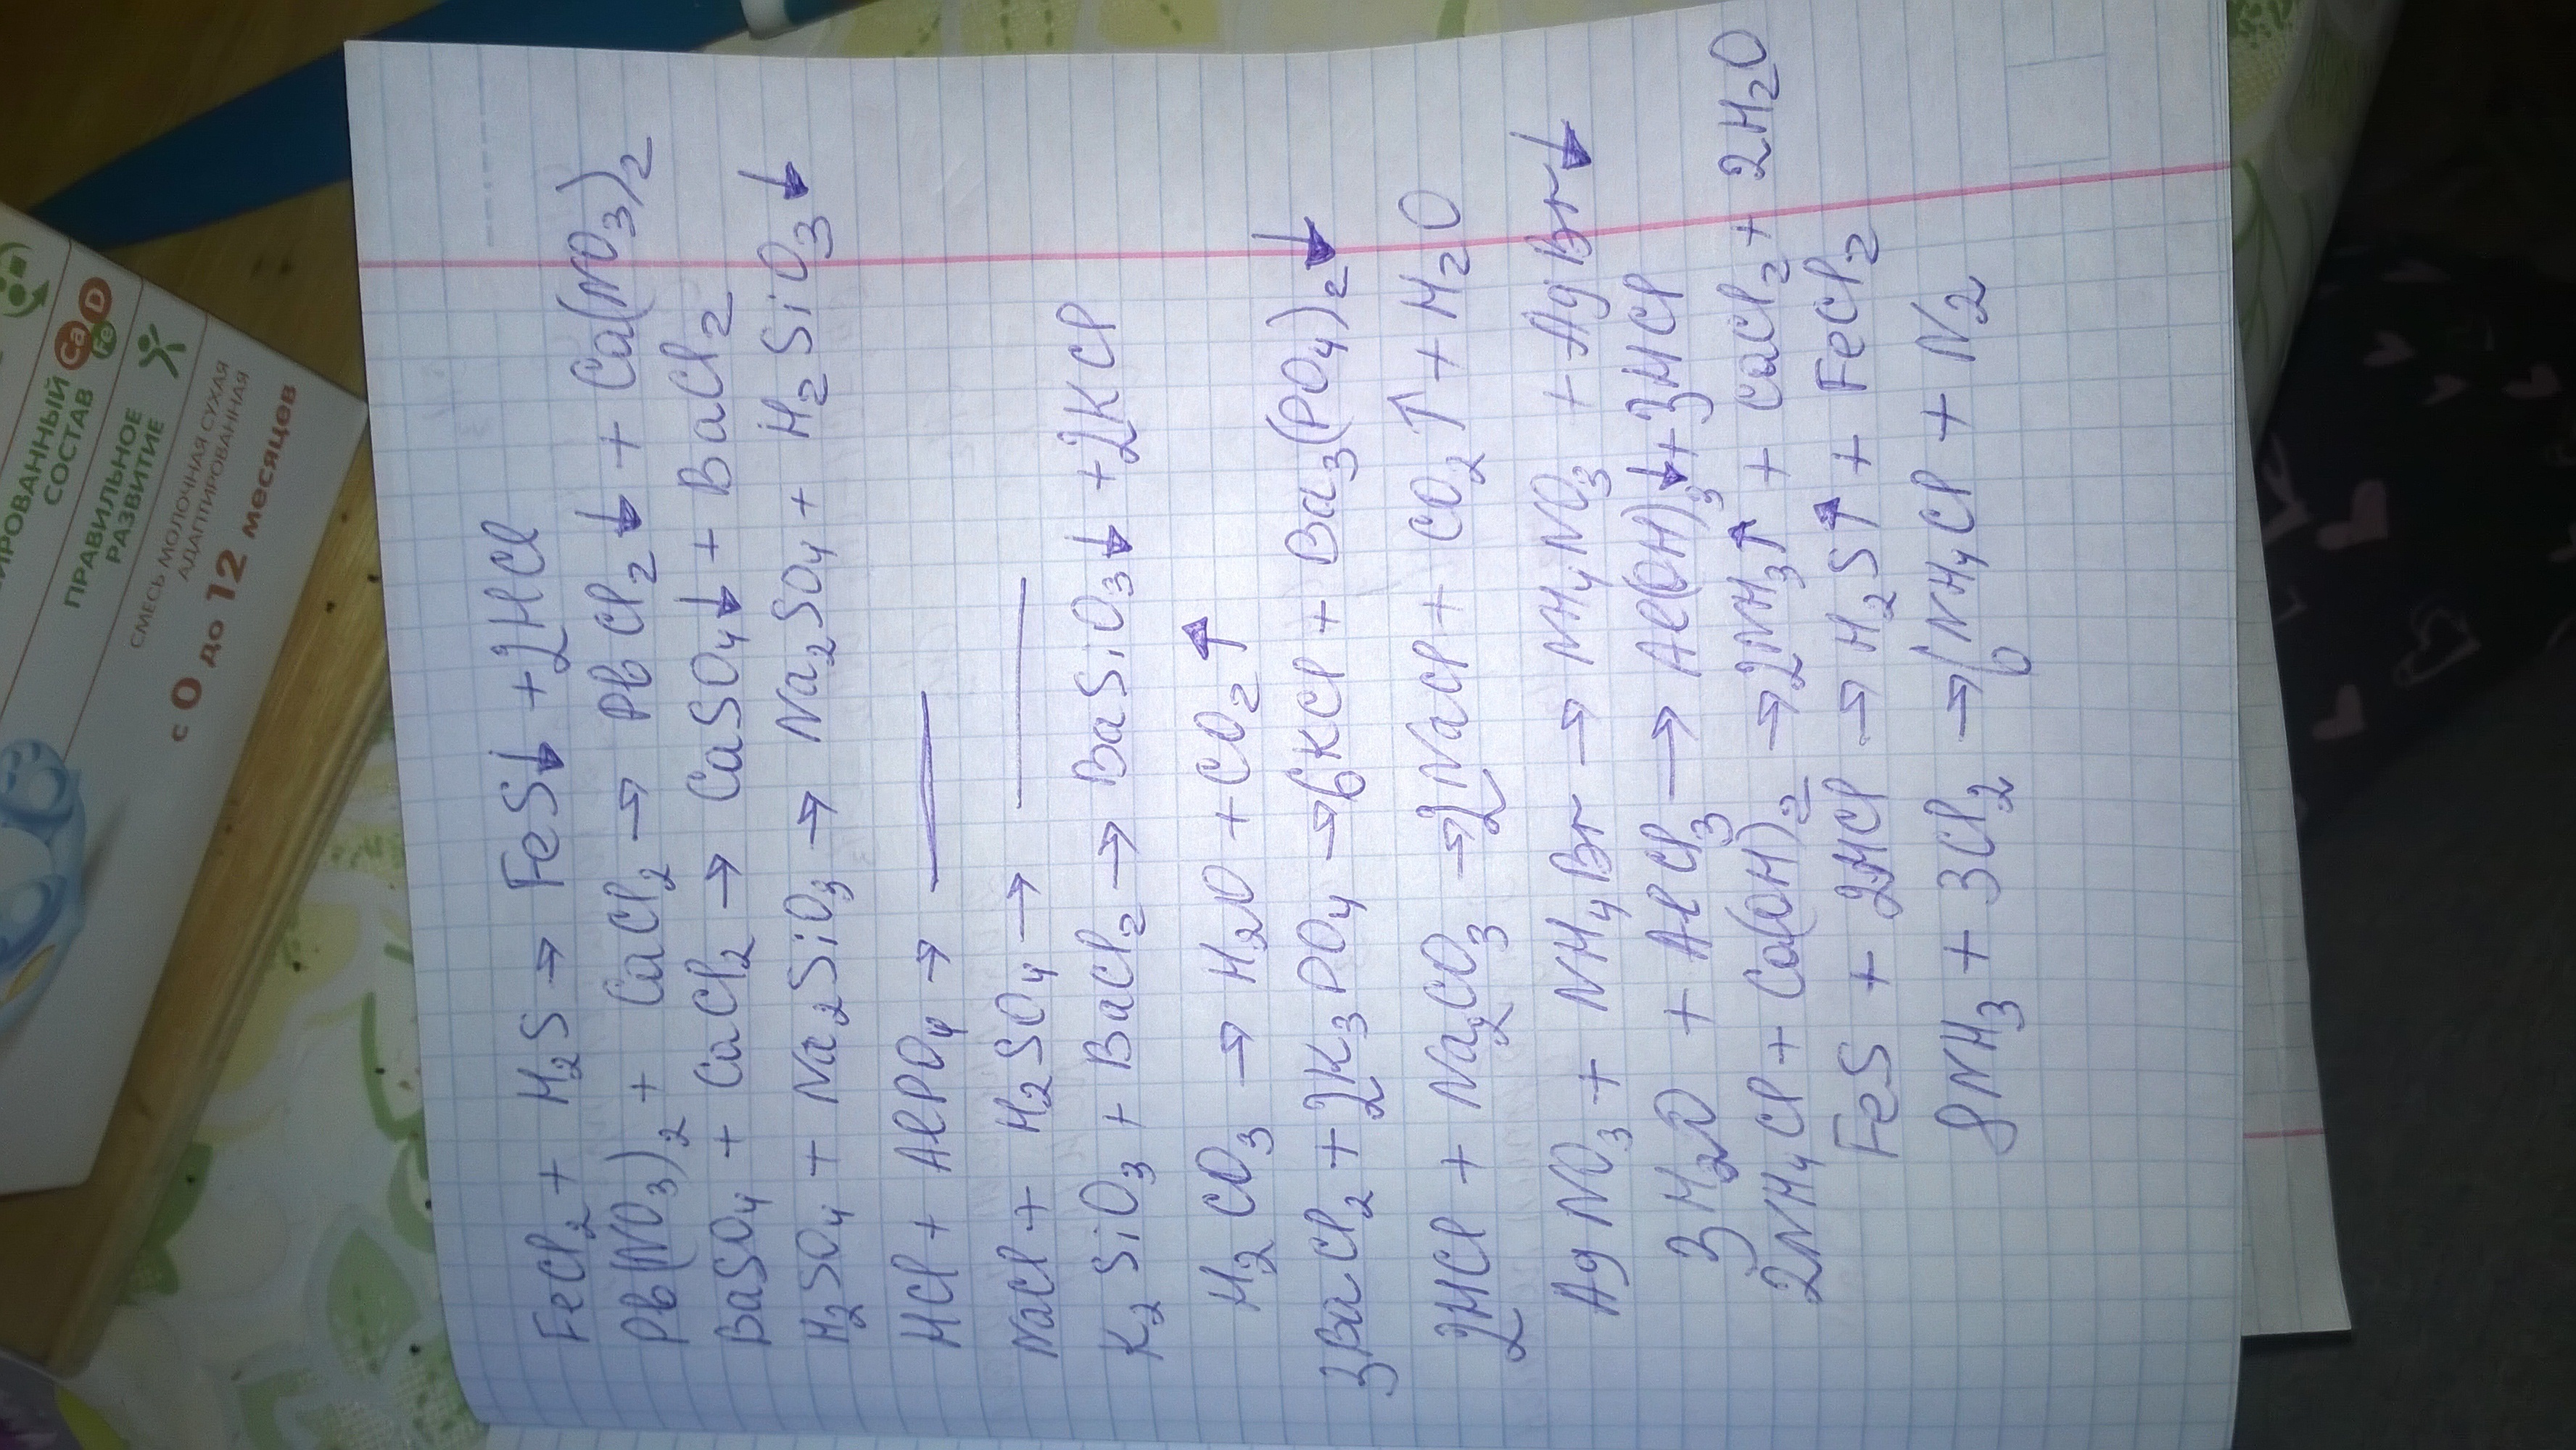 FeCl₂ + H₂S → FeS↓ + 2HCl
Pb(NO₃)₂ + CaCl₂ → PbCl₂↓ + Ca(NO₃)₂
BaSO₄ + CaCl₂ → CaSO₄↓ + BaCl₂
H₂SO₄ + Na₂SiO₃ → Na₂SO₄ + H₂SiO₃↓
HCl + AlPO₄ → —
NaCl + H₂SO₄ → —
K₂SiO₃ + BaCl₂ → BaSiO₃↓ + 2KCl
H₂CO₃ → H₂O + CO₂↑
3BaCl₂ + 2K₃PO₄ → 6KCl + Ba₃(PO₄)₂↓
2HCl + Na₂CO₃ → 2NaCl + CO₂↑ + H₂O
AgNO₃ + NH₄Br → NH₄NO₃ + AgBr↓
3H₂O + AlCl₃ → Al(OH)₃↓ + 3HCl
2NH₄Cl + Ca(OH)₂ → 2NH₃↑ + CaCl₂ + 2H₂O
FeS + 2HCl → H₂S↑ + FeCl₂
8NH₃ + 3Cl₂ → 6NH₄Cl + N₂
СОСТАВ
Ca D
Fe
ПРАВИЛЬНОЕ
РАЗВИТИЕ
СМЕСЬ МОЛОЧНАЯ СУХАЯ
АДАПТИРОВАННАЯ
с 0 до 12 месяцев